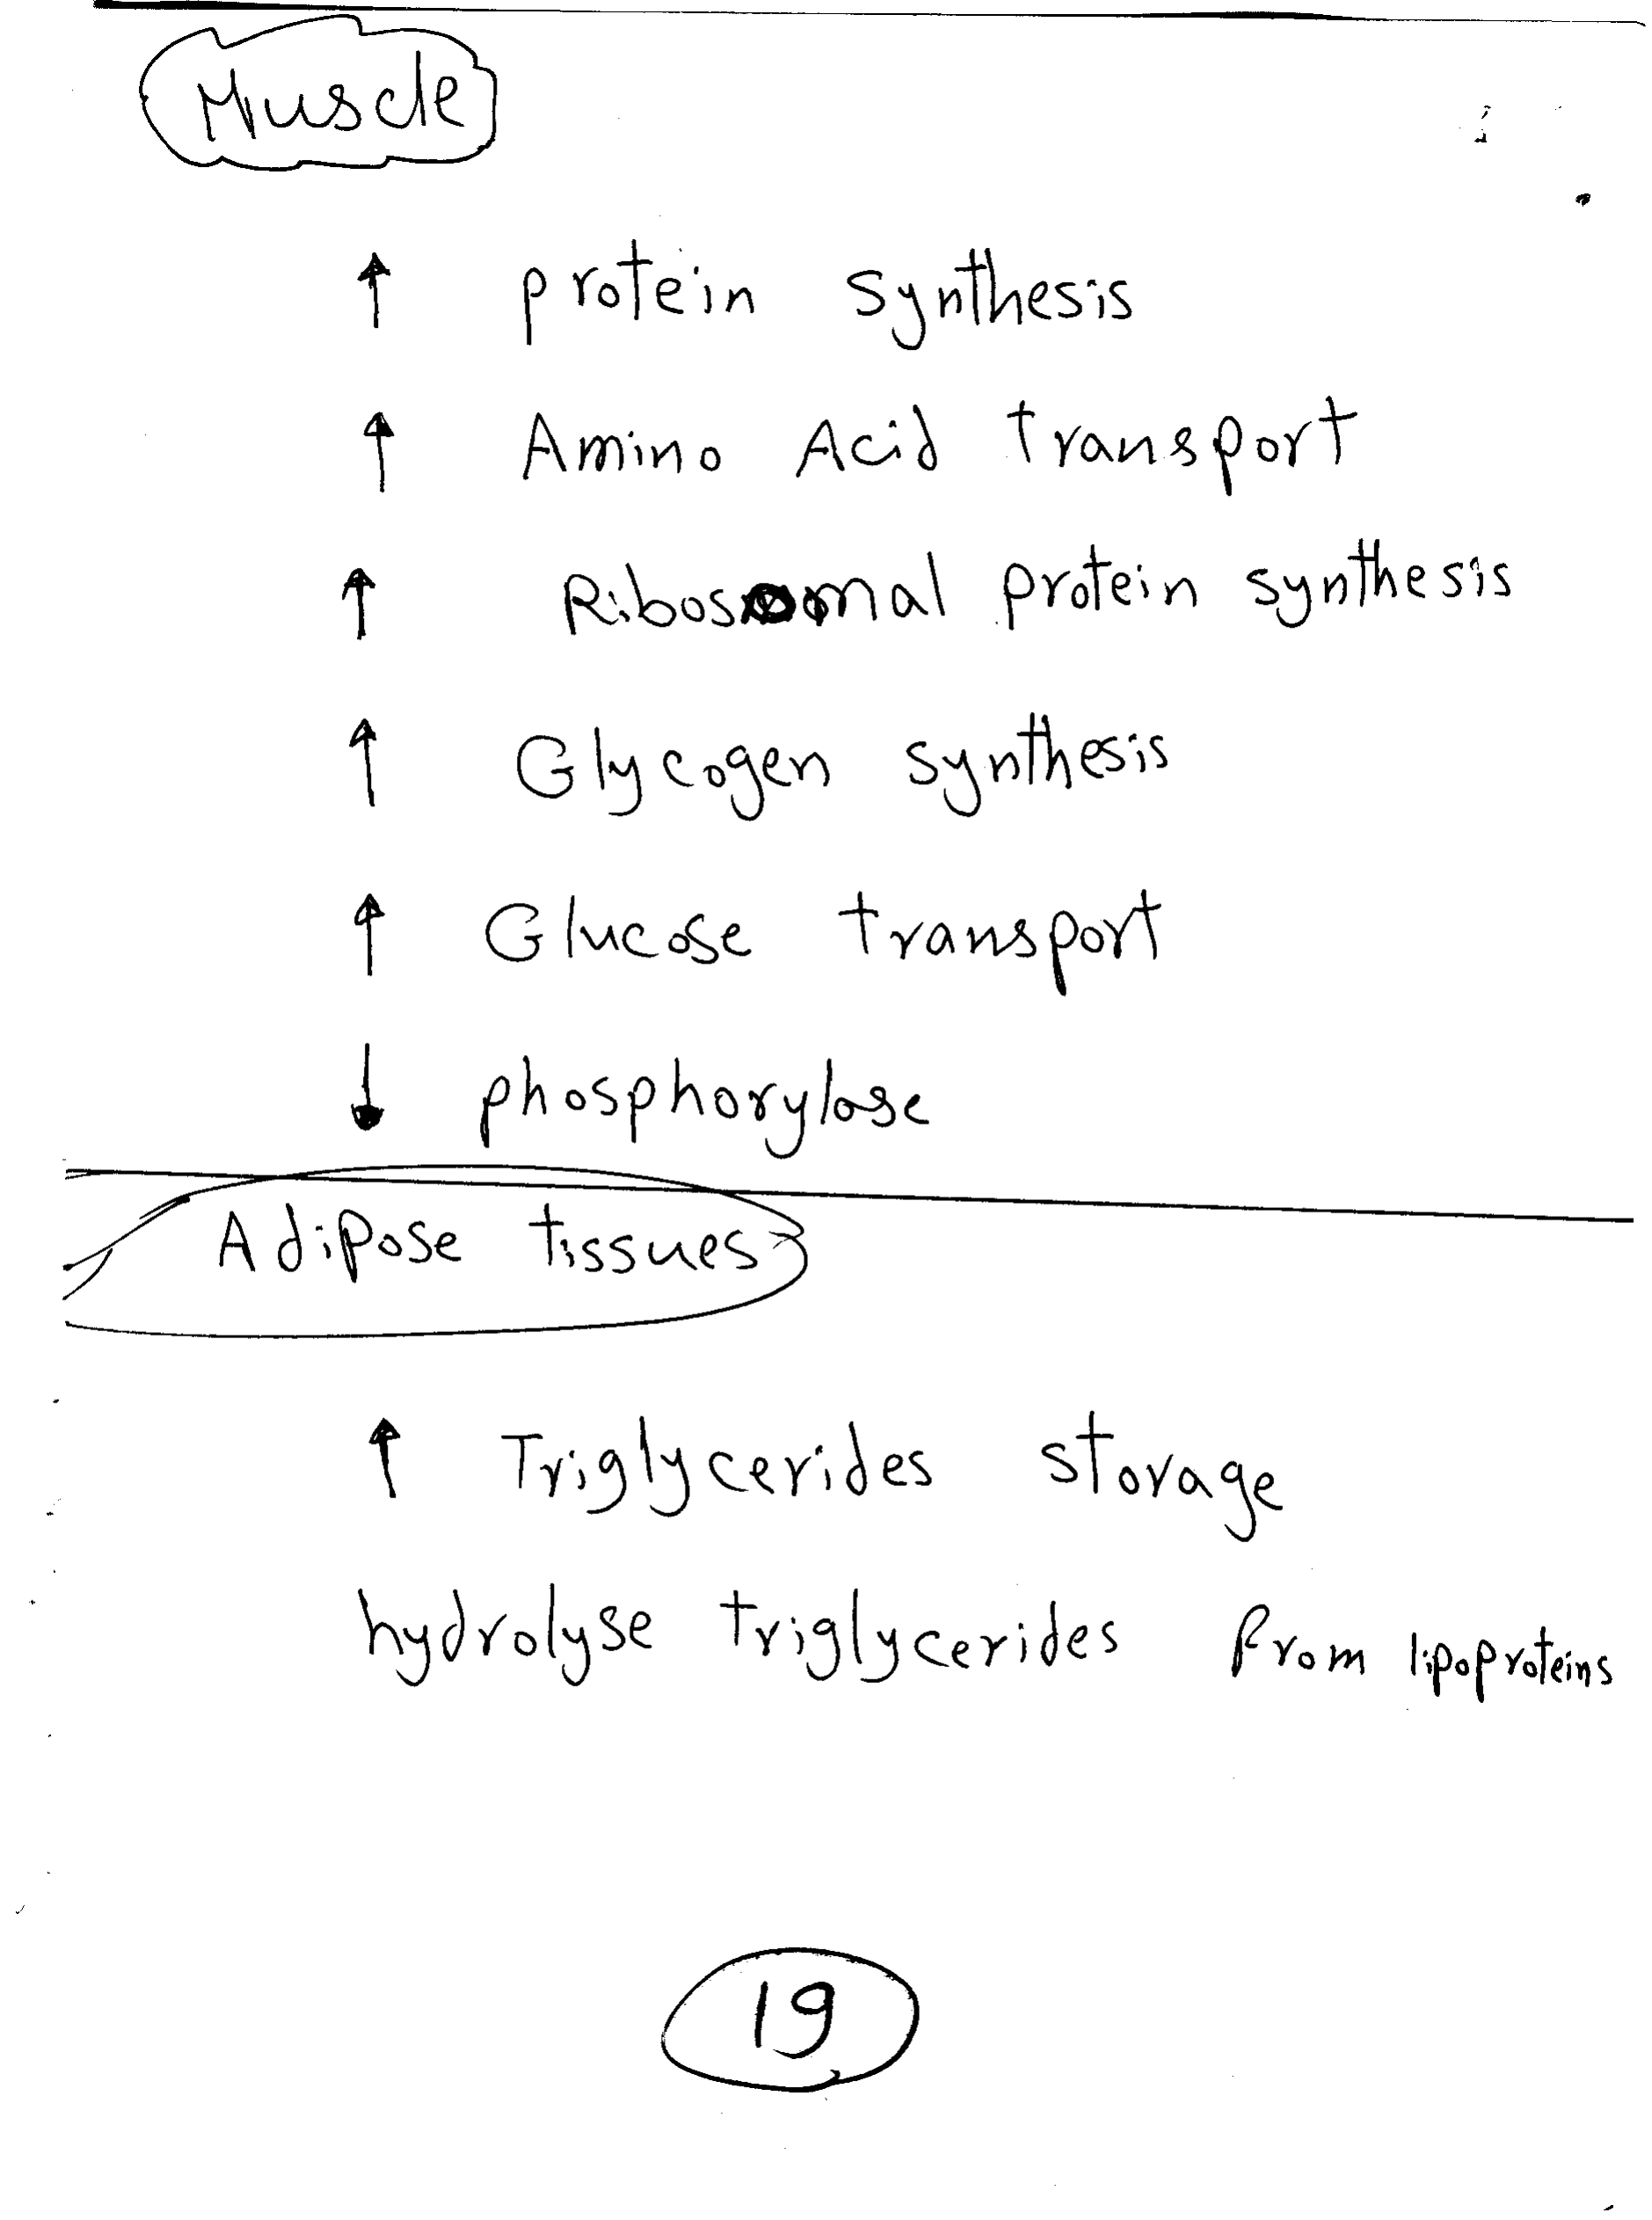 Muscle
↑ protein synthesis
↑ Amino Acid transport
↑ Ribosomal protein synthesis
↑ Glycogen synthesis
↑ Glucose transport
↓ phosphorylase
Adipose tissues
↑ Triglycerides storage
hydrolyse triglycerides from lipoproteins
19